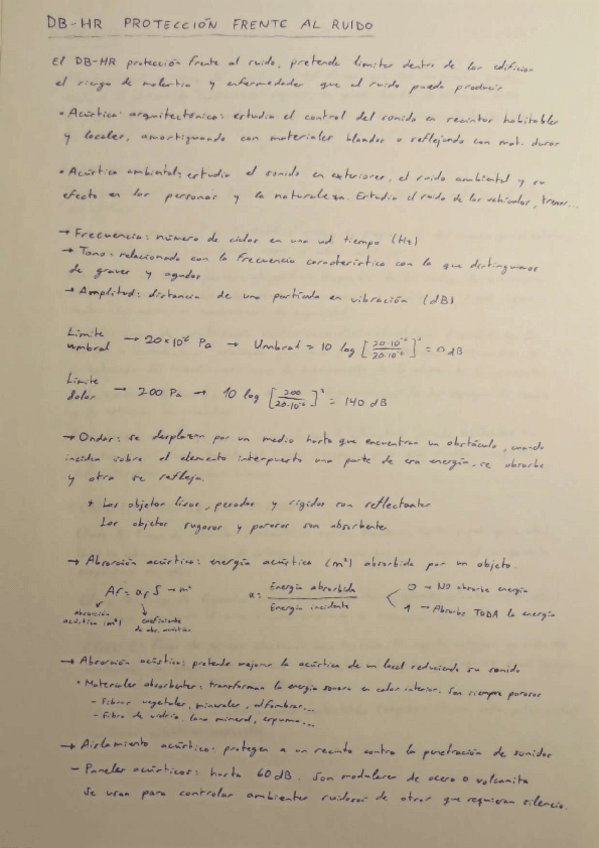 DB-HR PROTECCIÓN FRENTE AL RUIDO
El DB-HR protección frente al ruido, pretende limitar dentro de los edificios
el riesgo de molestias y enfermedades que el ruido pueda producir
• Acústica arquitectónica: estudia el control del sonido en recintos habitables
y locales, amortiguando con materiales blandos o reflejando con mat. duros
• Acústica ambiental: estudia el sonido en exteriores, el ruido ambiental y su
efecto en las personas y la naturaleza. Estudia el ruido de los vehículos, trenes...
→ Frecuencia: número de ciclos en una ud. tiempo (Hz)
→ Tono: relacionado con la frecuencia característica con la que distinguimos
de graves y agudos
→ Amplitud: distancia de una partícula en vibración (dB)
Límite umbral → 20×10⁻⁶ Pa → Umbral = 10 log [20·10⁻⁶ / 20·10⁻⁶]² = 0 dB
Límite dolor → 200 Pa → 10 log [200 / 20·10⁻⁶]² = 140 dB
→ Ondas: se desplazan por un medio hasta que encuentran un obstáculo, cuando
inciden sobre el elemento interpuesto una parte de esa energía, se absorbe
y otra se refleja.
* Los objetos lisos, pesados y rígidos son reflectantes
Los objetos rugosos y porosos son absorbente
→ Absorción acústica: energía acústica (m²) absorbida por un objeto.
Af = αf S → m² α = Energía absorbida / Energía incidente
0 → NO absorbe energía
1 → Absorbe TODA la energía
absorción acústica (m²)
coeficiente de abs. acústica
→ Absorción acústica: pretende mejorar la acústica de un local reduciendo su sonido
• Materiales absorbentes: transforman la energía sonora en calor interior. Son siempre porosos
- Fibras vegetales, minerales, alfombras...
- Fibra de vidrio, lana mineral, espuma...
→ Aislamiento acústico: protegen a un recinto contra la penetración de sonidos
- Paneles acústicos: hasta 60 dB. Son modulares de acero o volcanita
Se usan para controlar ambientes ruidosos de otros que requieran silencio.